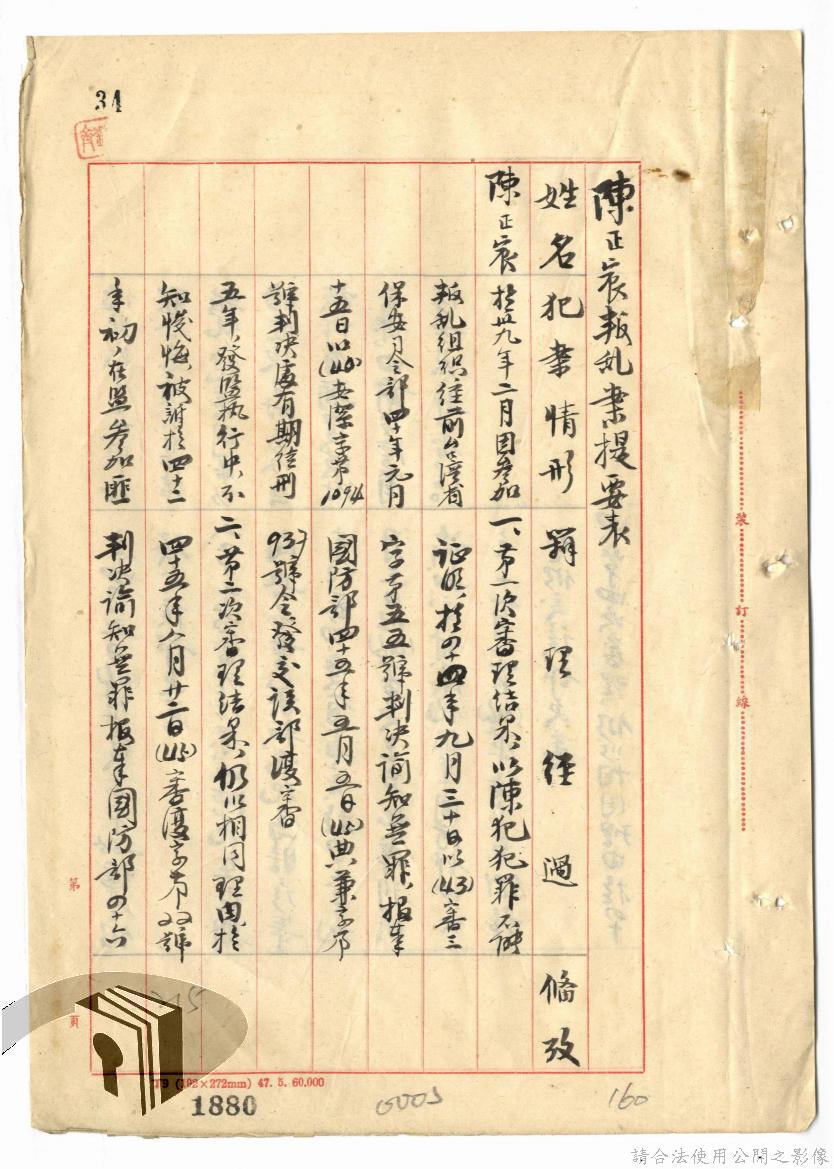 34
陳正宸叛乱案提要表
姓名 犯案情形 辦理經過 備攷
陳正宸
於卅九年二月因參加
叛乱組織經前台灣省
保安司令部四十年元月
十五日以(40)安潔字第1094
號判决處有期徒刑
五年,發監执行中,不
知悛悔,被訴於四十二
年初,在監參加匪
一、第一次審理結果,以陳犯犯罪不能
証明,於四十四年九月三十日以(43)審三
字第五五號判决諭知無罪,報奉
國防部四十五年五月五日(45)典兼字第
937號令發交該部復審
二、第二次審理結果,仍以相同理由於
四十五年八月廿二日(45)審復字第22號
判决諭知無罪報奉國防部四十六
裝訂線
第
頁
T9 (192×272mm) 47. 5. 60.000
1880
160
請合法使用公開之影像